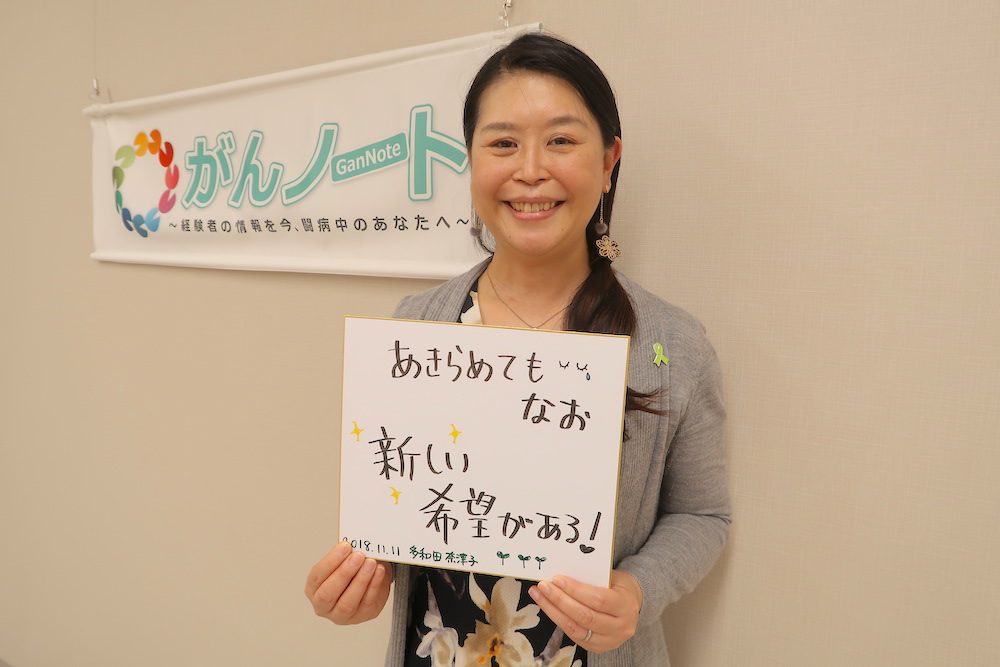 がんノート
GanNote
～経験者の情報を今、闘病中のあなたへ～
あきらめても
なお
新しい
希望がある!
2018.11.11 多和田奈津子